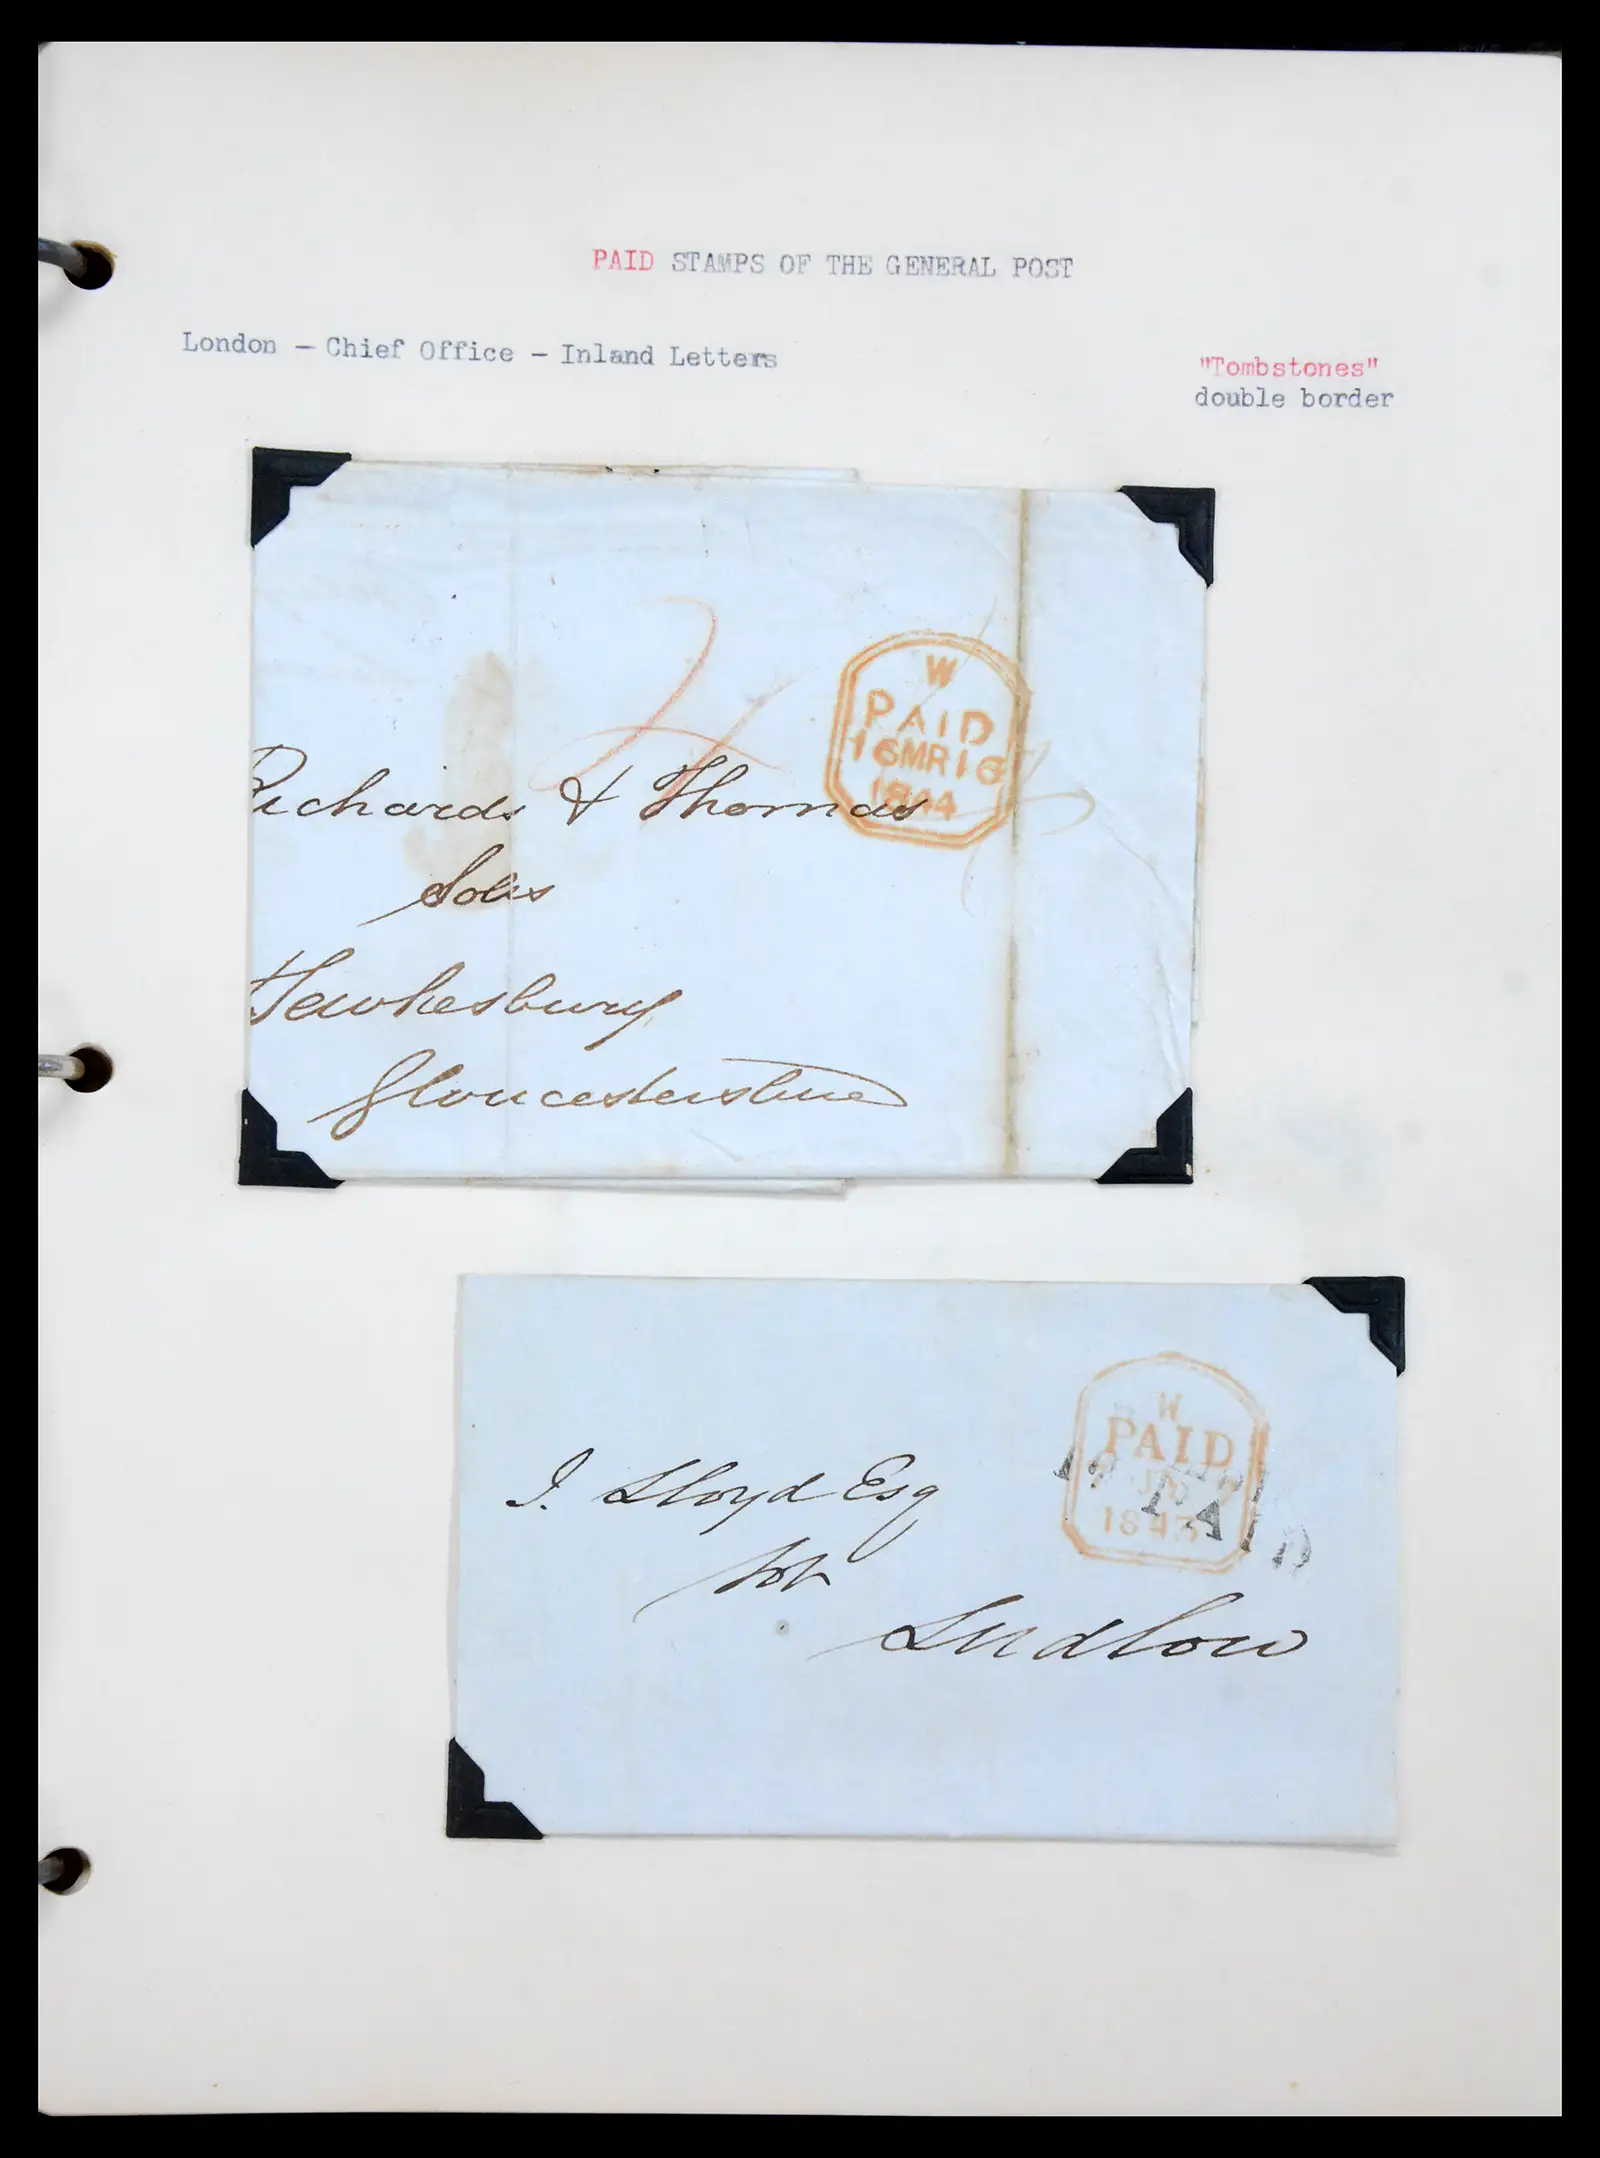 PAID STAMPS OF THE GENERAL POST
London - Chief Office - Inland Letters
"Tombstones"
double border
4
W
PAID
16MR16
1844
Richards & Thomas
Solrs
Tewkesbury
Gloucestershire
W
PAID
1843
PAID
J. Lloyd Esq
Ludlow